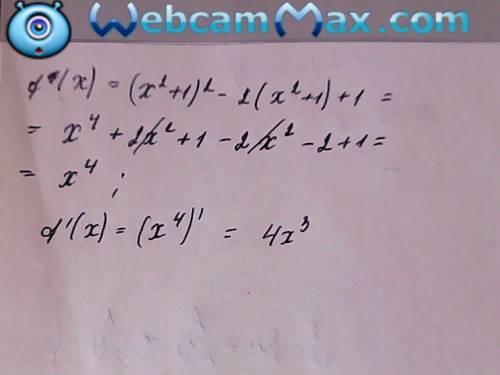 WebcamMax.com
f(x) = (x²+1)² - 2(x²+1)+1 =
= x⁴ + 2x² + 1 - 2x² - 2+1=
= x⁴ ;
f'(x) = (x⁴)' = 4x³